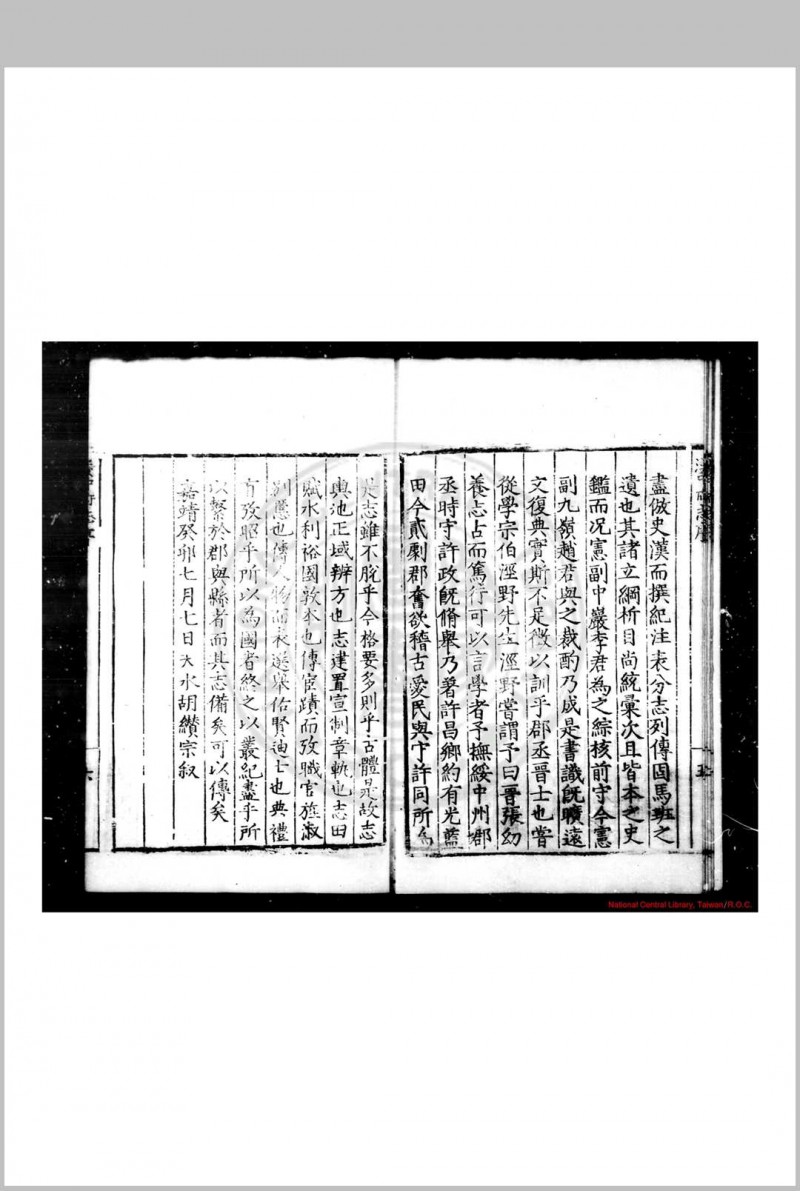 盡倣史漢而撰紀注表分志列傳固馬班之
遺也其諸立綱析目尚統彙次且皆本之史
鑑而况憲副中巖李君為之綜核前守今憲
副九嶺趙君與之裁酌乃成是書識旣曠遠
文復典實斯不足徵以訓乎郡丞晉士也嘗
從學宗伯涇野先生涇野嘗謂予曰晉張幼
養志占而篤行可以言學者予撫綏中州郡
丞時守許政旣脩舉乃著許昌鄉約有光藍
田今貳劇郡奮欲稽古愛民與守許同所為
是志雖不脫乎今格要多則乎古體是故志
輿池正域辨方也志建置宣制章軌也志田
賦水利裕國敦本也傳宦蹟而攷職官旌淑
別慝也傳人物而表選舉佑賢迪士也典禮
有攷昭乎所以為國者終之以叢紀盡乎所
以繫於郡與縣者而其志備矣可以傳矣
嘉靖癸卯七月七日天水胡纘宗叙
National Central Library, Taiwan/R.O.C.